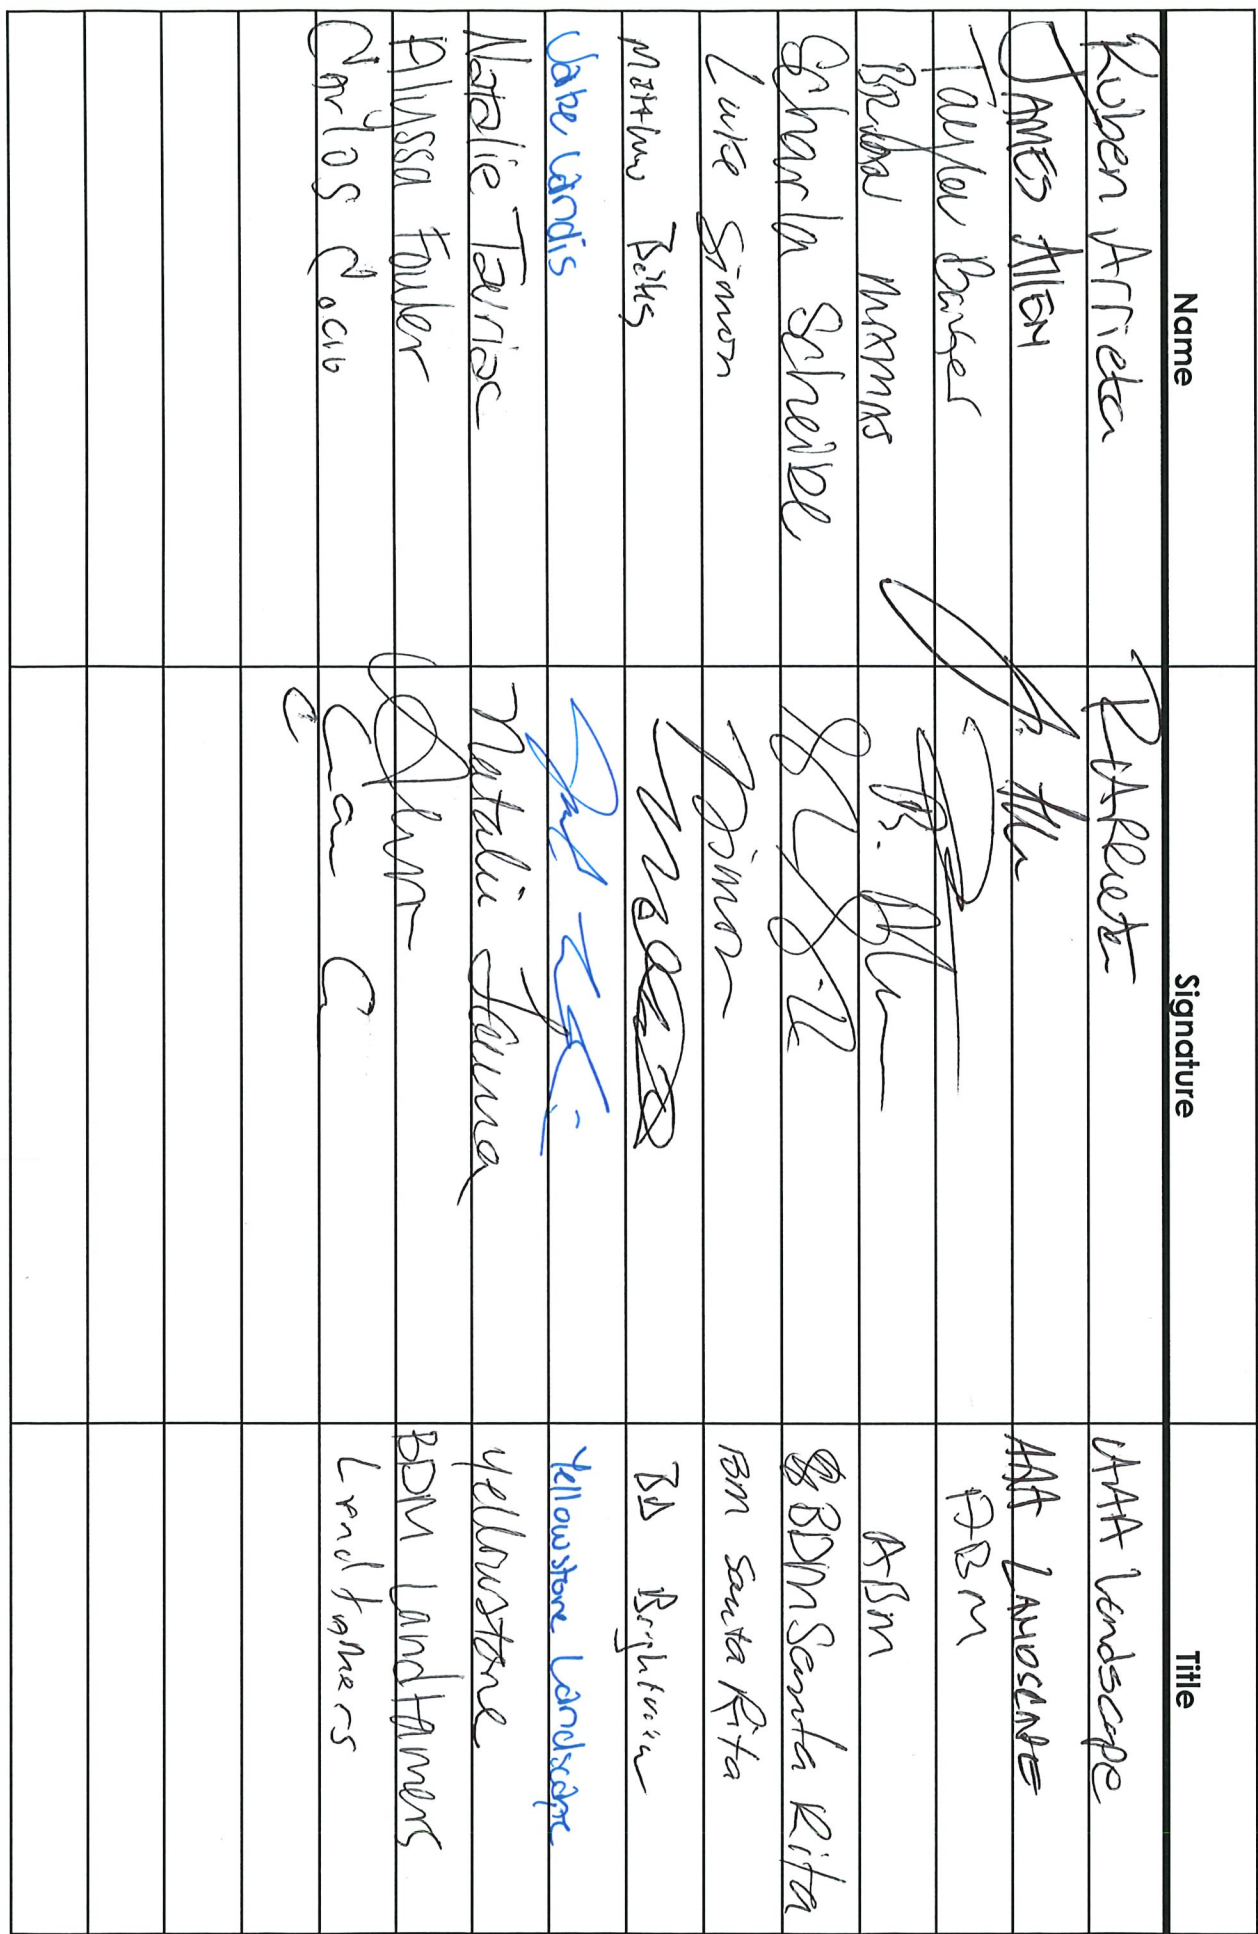 Name Signature Title
Ruben Arrieta RARRieta AAA Landscape
JAMES AllEN AAA LANDSCAPE
Taylor Barger ABM
ABM
Scharla Scheibe BDM Santa Rita
Luke Simon Simon BM Santa Rita
Matthew Betts BD Brightview
Jake Landis Yellowstone Landscape
Natalie Tauriac Natalie Yellowstone
Alyssa Fowler BDM Landtamers
Carlos Cocio Landtamers